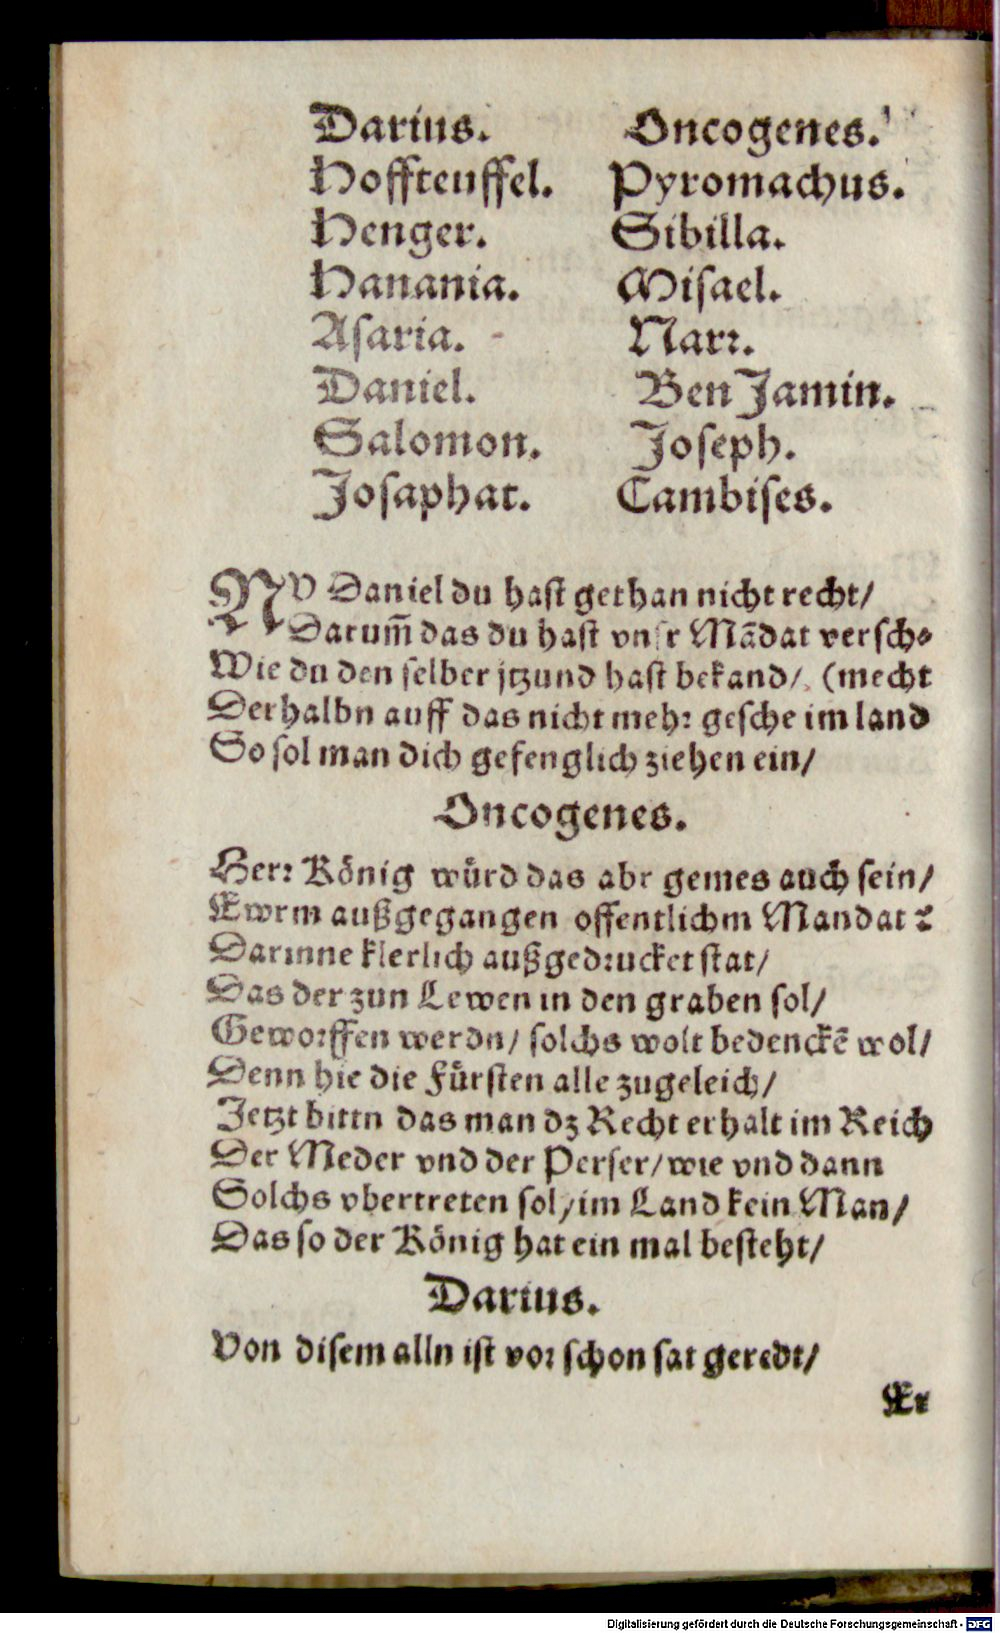 Darius. Oncogenes.
Hoffteuffel. Pyromachus.
Henger. Sibilla.
Hanania. Misael.
Asaria. Narr.
Daniel. Ben Jamin.
Salomon. Joseph.
Josaphat. Cambises.
NV Daniel du hast gethan nicht recht/
Darum̃ das du hast vnsr Mãdat versch=
Wie du den selber jtzund hast bekand/ (mecht
Derhalbn auff das nicht mehr gesche im land
So sol man dich gefenglich ziehen ein/
Oncogenes.
Herr König würd das abr gemes auch sein/
Ewrm außgegangen offentlichm Mandat?
Darinne klerlich außgedrucket stat/
Das der zun Lewen in den graben sol/
Geworffen werdn/ solchs wolt bedenckẽ wol/
Denn hie die Fürsten alle zugeleich/
Jetzt bittn das man dz Recht erhalt im Reich
Der Meder vnd der Perser/ wie vnd dann
Solchs vbertreten sol/ im Land kein Man/
Das so der König hat ein mal besteht/
Darius.
Von disem alln ist vor schon sat geredt/
Er
Digitalisierung gefördert durch die Deutsche Forschungsgemeinschaft - DFG